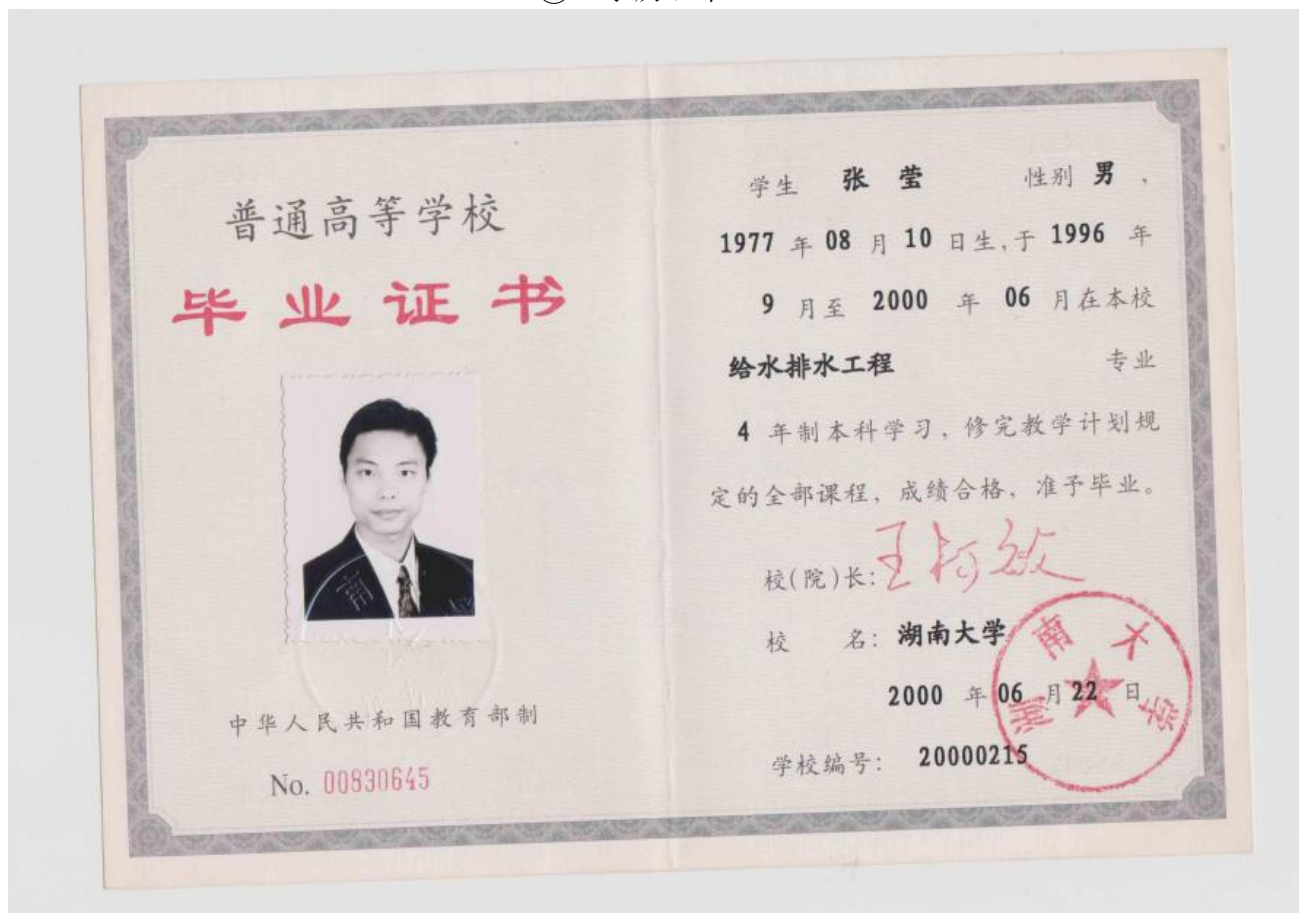 普通高等学校
毕业证书
中华人民共和国教育部制
No. 00830645
学生 张莹 性别 男，
1977 年 08 月 10 日生,于 1996 年
9 月至 2000 年 06 月在本校
给水排水工程 专业
4 年制本科学习，修完教学计划规
定的全部课程，成绩合格，准予毕业。
校(院)长: 王柯敏
校 名: 湖南大学
2000 年 06 月 22 日
学校编号: 20000215
湖南大学